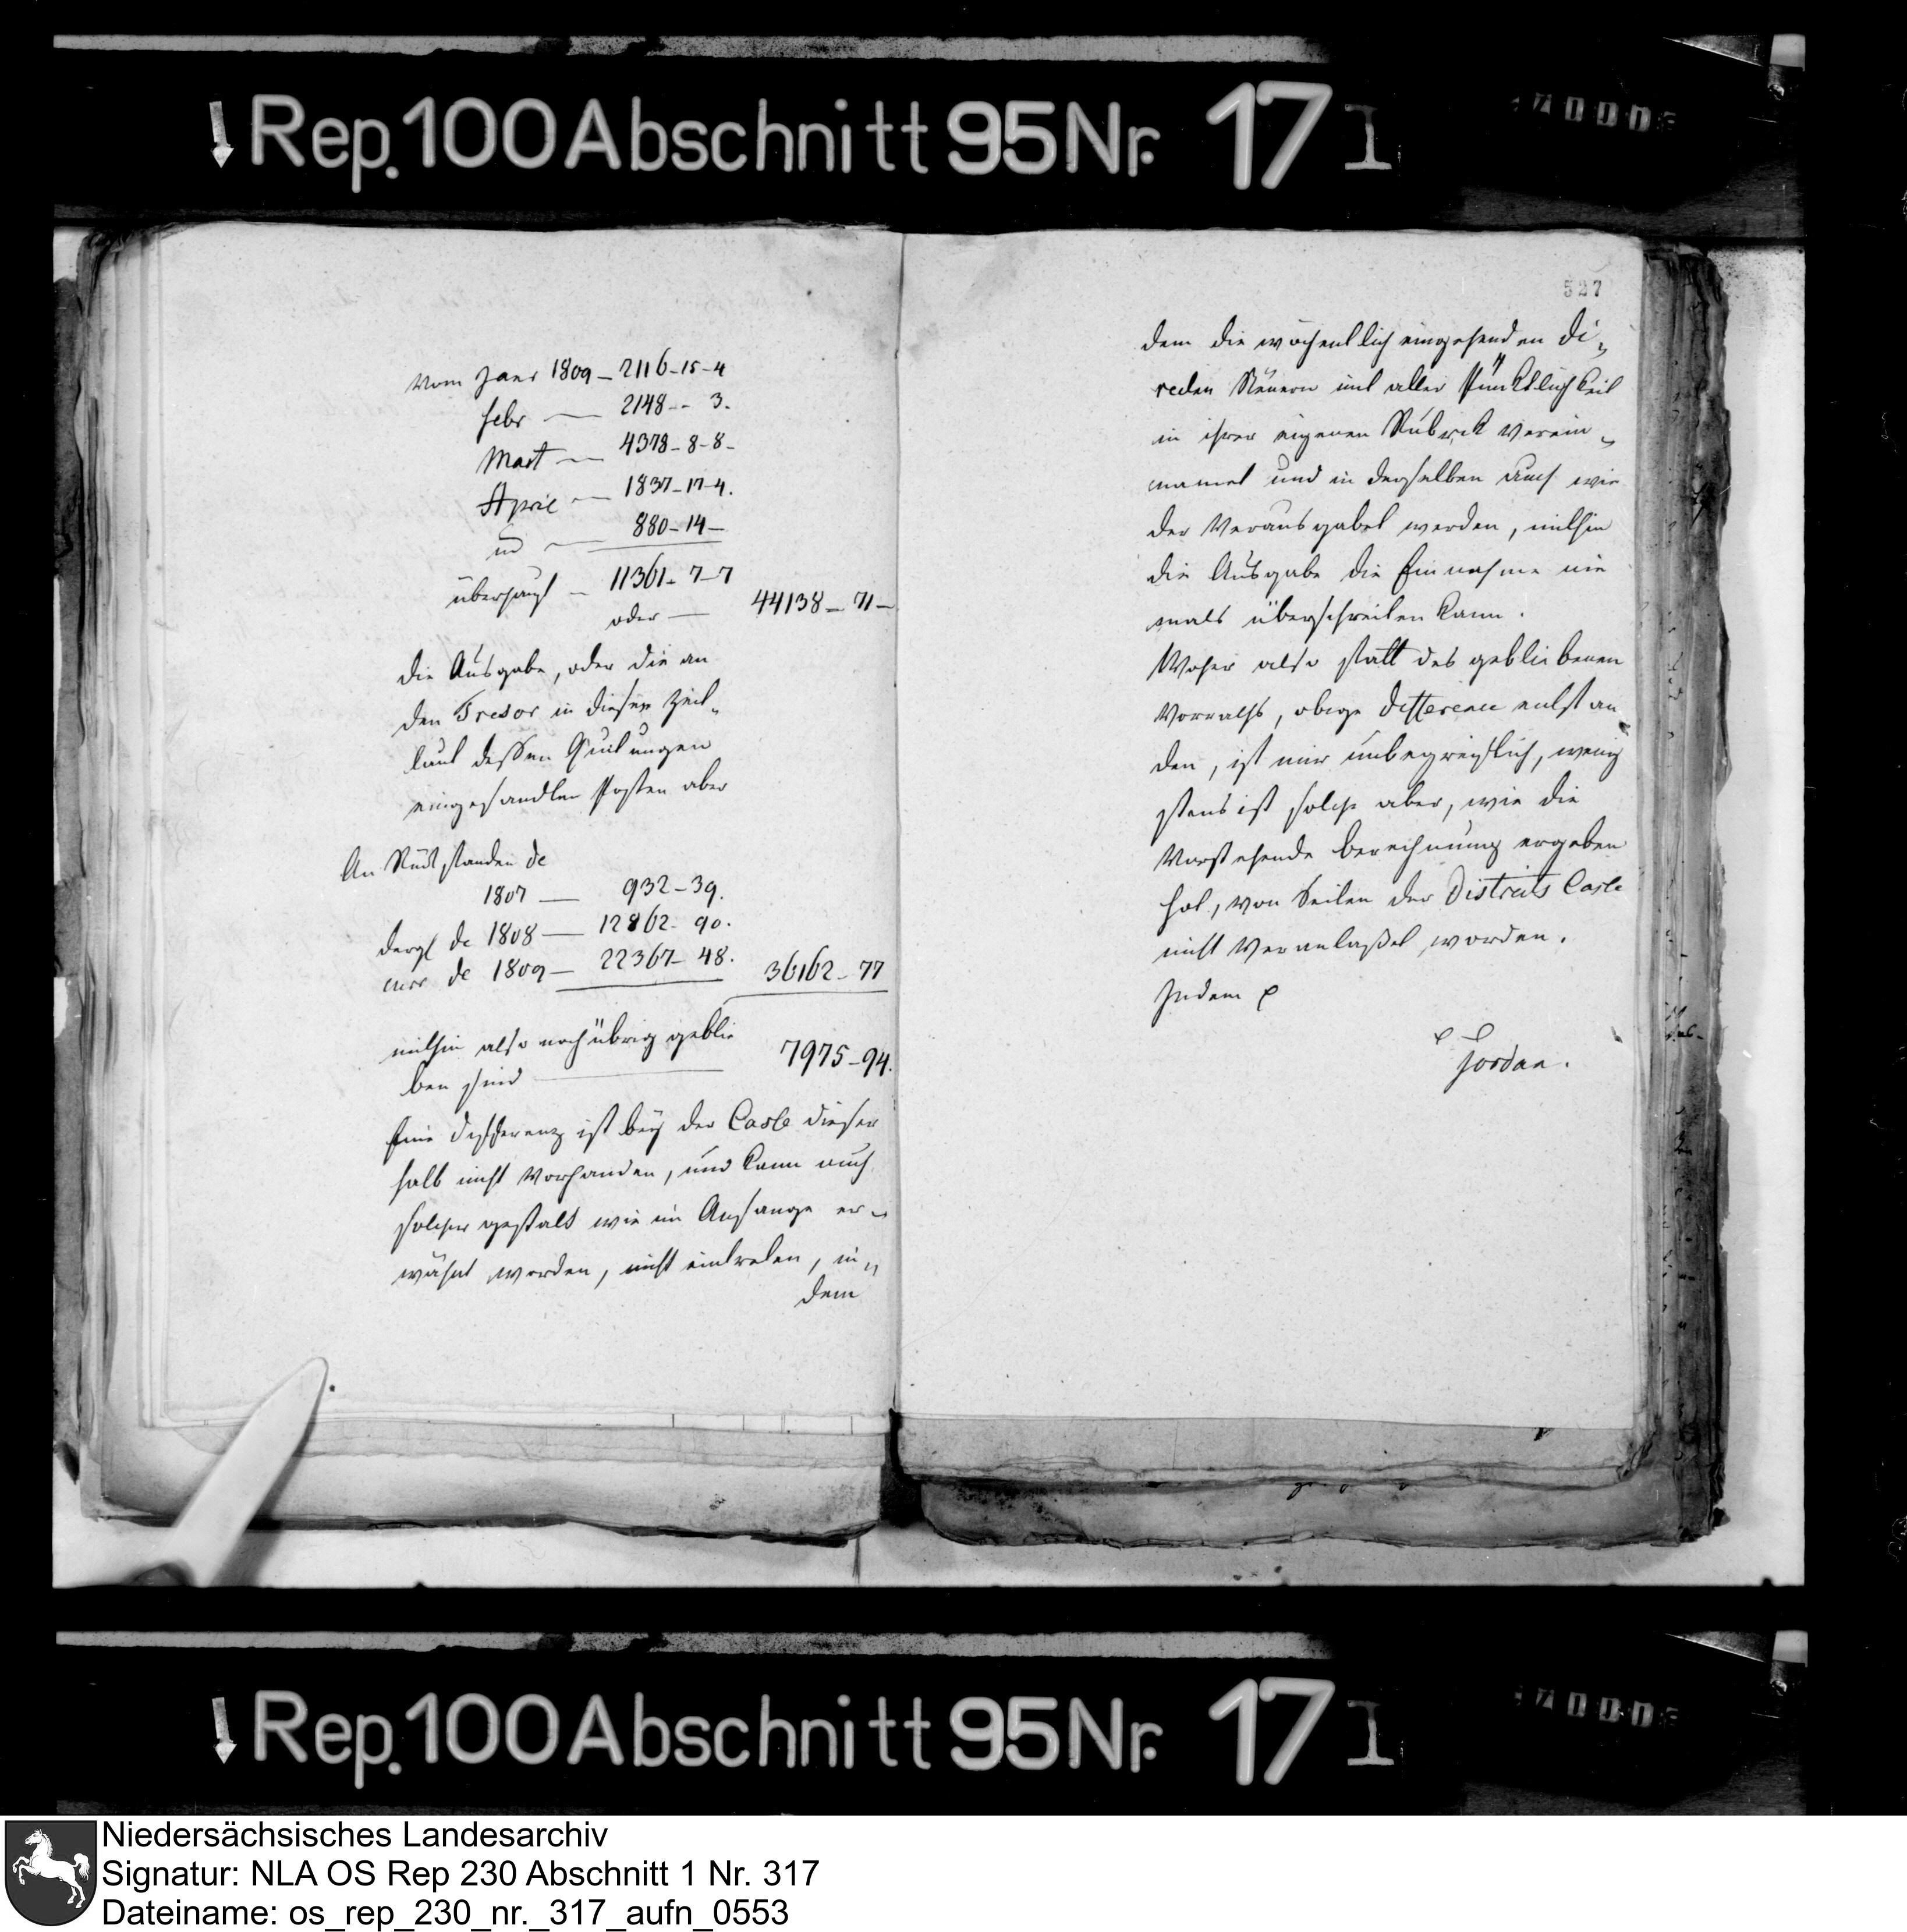 Rep. 100 Abschnitt 95 Nr. 17 I
vom Janr 1809 – 2116-15-4
Febr — 2148 - - 3.
Mart — 4378-8-8-
April — 1837-17-4.
— 880-14-
überhaupt — 11361-7-7
oder — 44138-71-
die Ausgabe, oder die an
den Tresor in dieser Zeit„
laut dessen Quitungen
eingesandten Posten aber
An Rückstanden de
1807 — 932-39.
dergl de 1808 — 12862-90.
curr de 1809 — 22367-48. 36162-77
mithin also noch übrig geblie
ben sind — 7975-94.
Eine Differenz ist bey der Casse dieser
halb nicht vorhanden, und kann auch
solcher gestalt wie im Anfange er-
wähnt worden, nicht eintreten, in„
dem
527
dem die wöchentlich eingehenden di„
recten Steuern mit aller Pünktlichkeit
in ihrer eigenen Rubrick verein„
namet und in derselben auch wie
der verausgabet werden, mithin
die Ausgabe die Einnahme nie
mals überschreiten kann.
Woher also statt des gebliebenen
Vorraths, obige Difference entstan
den, ist mir unbegreiflich, wenig
stens ist solche aber, wie die
Vorstehende berechnung ergeben
hat, von Seiten der Districts Casse
nicht veranlaßet worden.
Indem
Jordan.
Rep. 100 Abschnitt 95 Nr. 17 I
Niedersächsisches Landesarchiv
Signatur: NLA OS Rep 230 Abschnitt 1 Nr. 317
Dateiname: os_rep_230_nr._317_aufn_0553